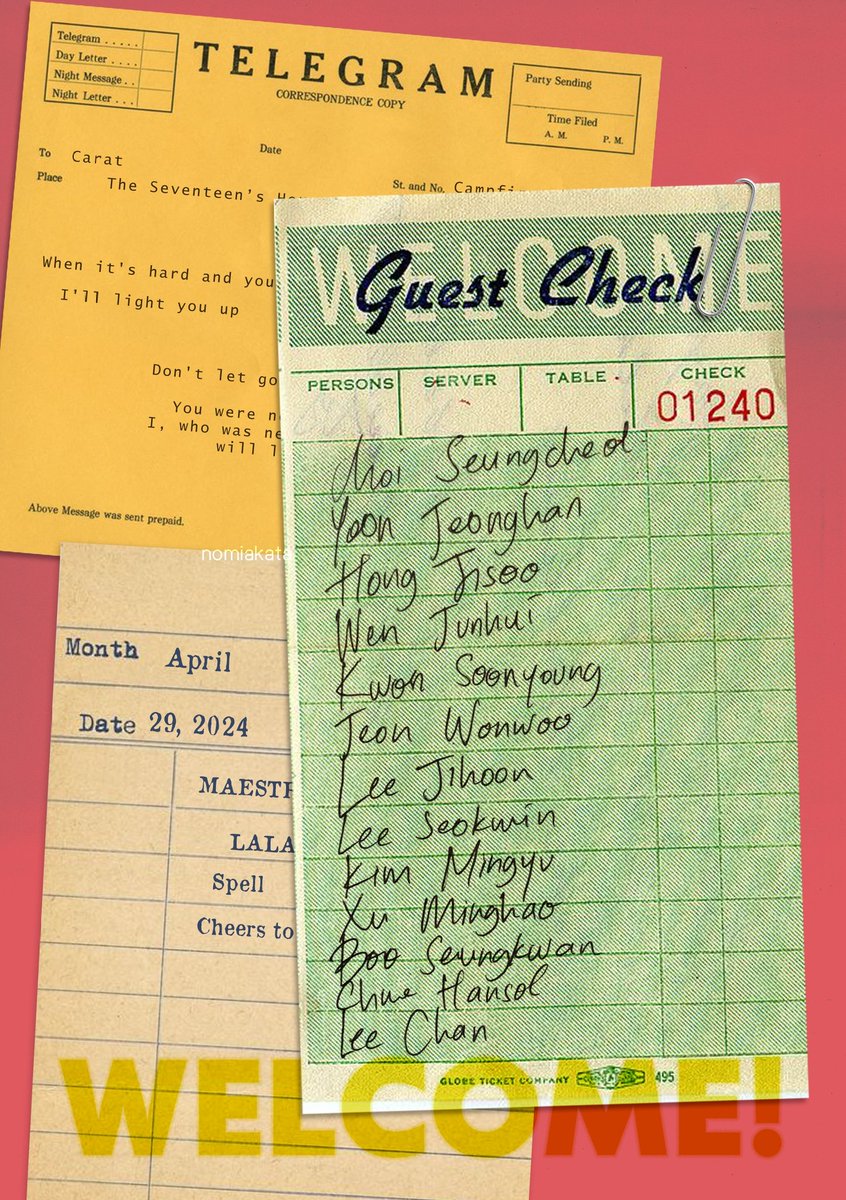 Telegram . . . . .
Day Letter . . . .
Night Message . .
Night Letter . . .
TELEGRAM
CORRESPONDENCE COPY
Party Sending
Time Filed
A. M. P. M.
To Carat
Date
Place The Seventeen's Ho
St. and No. Campfi
When it's hard and you
I'll light you up
Don't let go
You were n
I, who was ne
will l
Above Message was sent prepaid.
nomiakata
WELCOME
Guest Check
PERSONS SERVER TABLE CHECK
01240
Choi Seungcheol
Yoon Jeonghan
Hong Jisoo
Wen Junhui
Kwon Soonyoung
Jeon Wonwoo
Lee Jihoon
Lee Seokmin
Kim Mingyu
Xu Minghao
Boo Seungkwan
Chwe Hansol
Lee Chan
GLOBE TICKET COMPANY 495
Month April
Date 29, 2024
MAESTR
LALA
Spell
Cheers to
WELCOME!